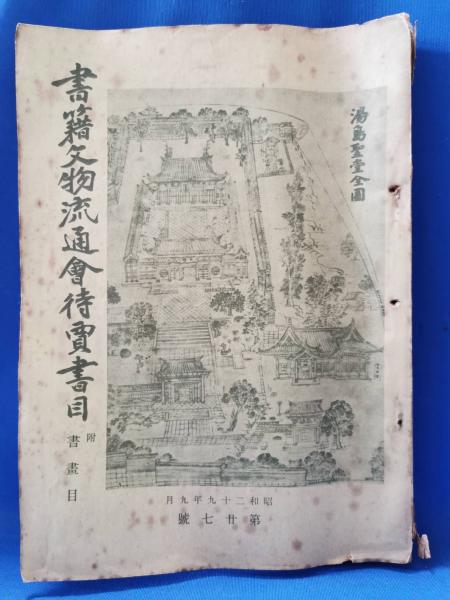 湯島聖堂全圖
書籍文物流通會待賈書目
附書畫目
昭和二十九年九月
第廿七號